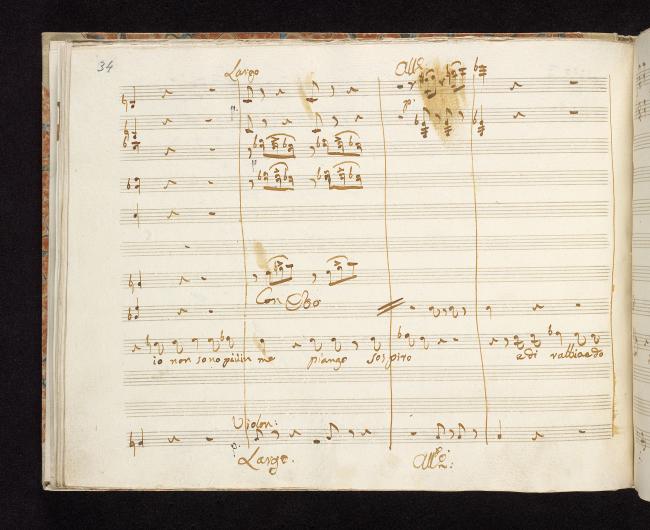 34
Largo
All?
p.
pp.
p
Con Obo
io non sono più in me piango sospiro e di rabbia e do
Violon:
p.
Largo.
All?: